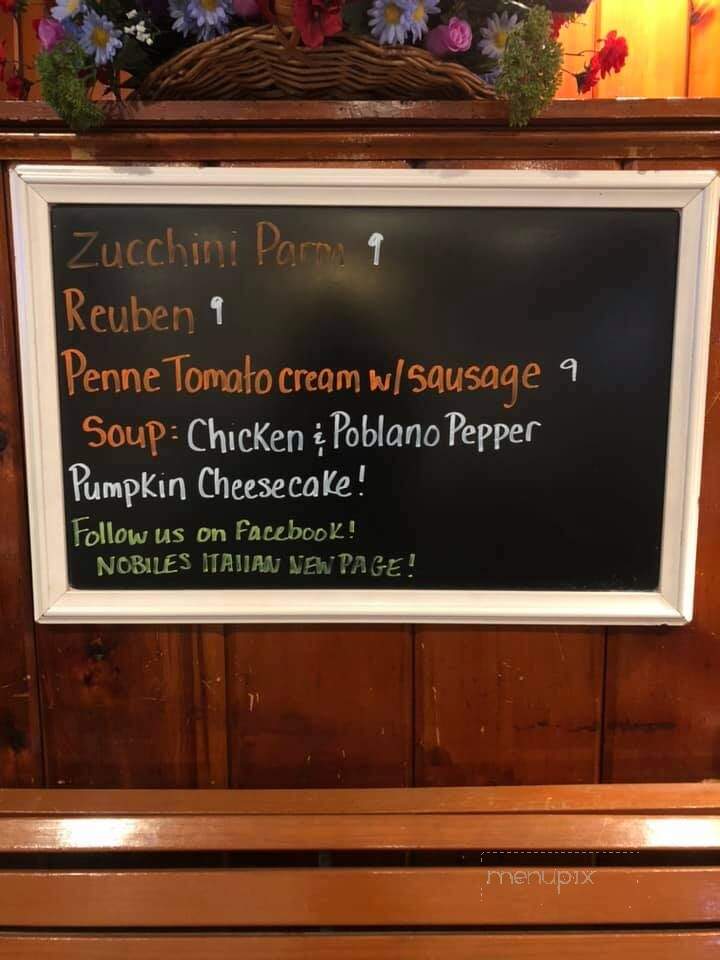 Zucchini Parm 9
Reuben 9
Penne Tomato cream w/sausage 9
Soup: Chicken & Poblano Pepper
Pumpkin Cheesecake!
Follow us on Facebook!
NOBILES ITAlIAN NEW PAGE!
menupix